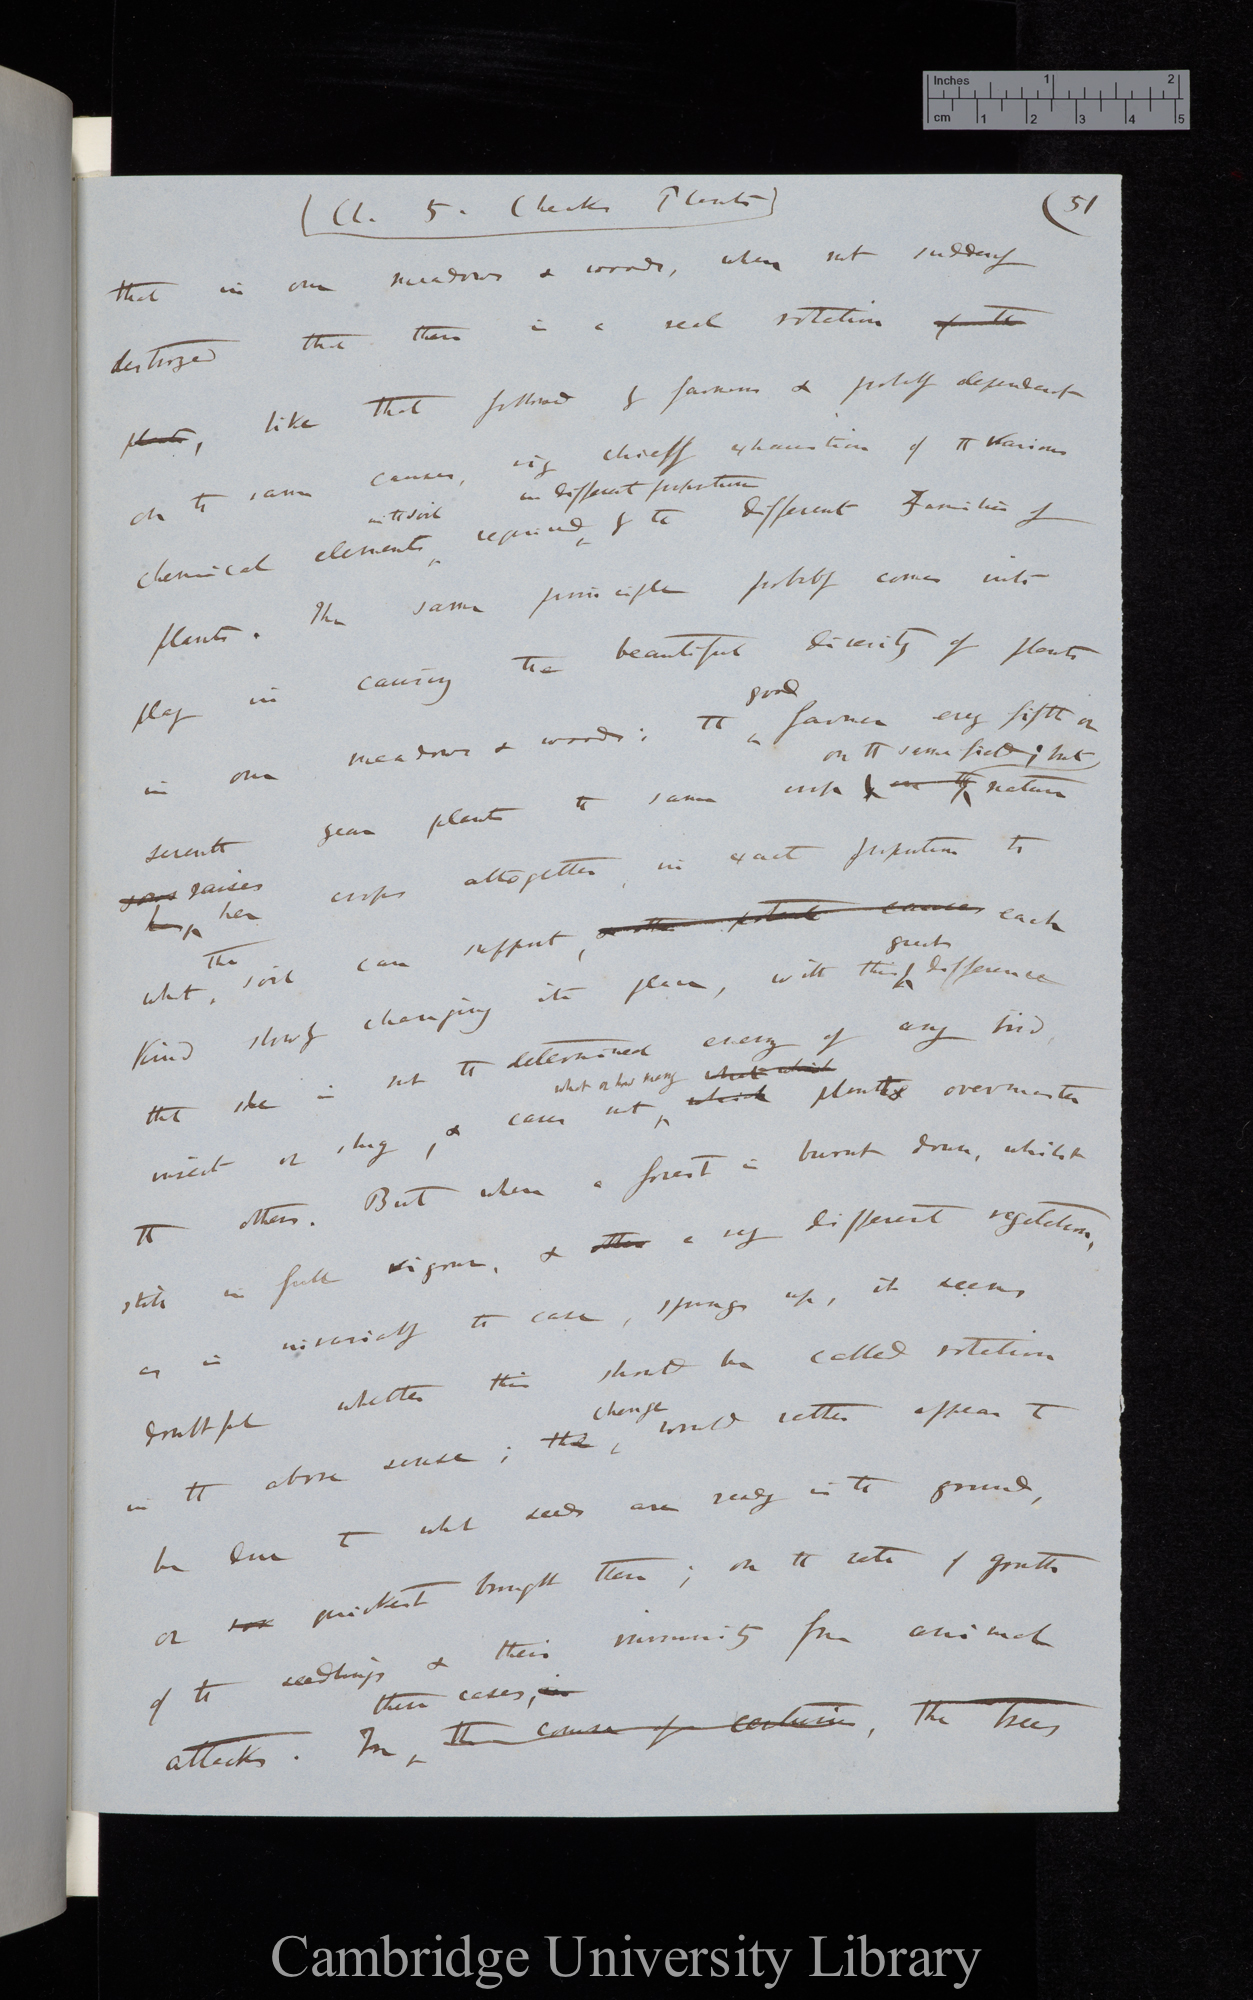 Inches 1 2
cm 1 2 3 4 5
(Ch. 5. Checks Plants)
(51
that in our meadows & woods, when not suddenly
destroyed that there is a real rotation of the
plants, like that followed by farmers & probably dependent
on the same causes, viz chiefly exhaustion of the various
in the soil in different proportions
chemical elements, required, by the different Families of
plants. The same principle probably comes into
play in causing the beautiful diversity of plants
good
in our meadows & woods; the farmer every fifth or
on the same field; but
seventh year plants the same crop on the nature
sows raises
her crops altogether, in exact proportion to
the
what, soil can support, & other potent causes each
great
Kind slowly changing its place, with this difference
that she is not the determined enemy of any bird,
what or how many what which
insect or slug, & cares not which plants overmaster
the others. But when a forest is burnt down, whilst
still in full vigour, & other a very different vegetation,
as is invariably the case, springs up, it seems
doubtful whether this should be called rotation
change
in the above sense; the, would rather appear to
be due to what seeds are ready in the ground,
or quickest brought there; on the rate of growth
of the seedlings & their immunity from animal
these cases, in
attacks. In the course of centuries, the trees
Cambridge University Library